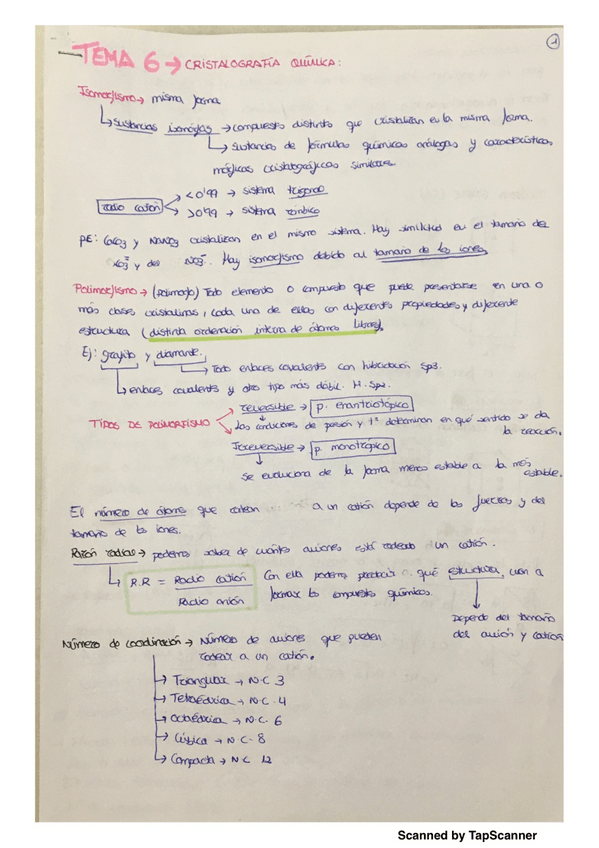 1
TEMA 6 → CRISTALOGRAFÍA QUÍMICA:
Isomorfismo → misma forma
↳ Sustancias isomorfas → compuestos distintos que cristalizan en la misma forma.
↳ Sustancias de fórmulas químicas análogas y características
cristalográficas similares
radio catión
<0'99 → sistema trigonal
>0'99 → sistema rómbico
pE: CaCO3 y NaNO3 cristalizan en el mismo sistema. Hay similitud en el tamaño del
y del NO3-. Hay isomorfismo debido al tamaño de los iones.
Polimorfismo → (polimorfo) Todo elemento o compuesto que puede presentarse en una o
más clases cristalinas, cada una de ellas con diferentes propiedades y diferente
estructura (distinta ordenación interna de átomos libres).
Ej: grafito y diamante.
↳ Todo enlaces covalentes con hibridación Sp3.
↳ enlaces covalentes y otro tipo más débil. H. Sp2.
TIPOS DE POLIMORFISMO
reversible → p. enantiotópico
Las condiciones de presión y tª determinan en qué sentido se da
la reacción.
Irreversible → p. monotrópico
Se evoluciona de la forma menos estable a la más
estable.
El número de átomos que rodean a un catión depende de las fuerzas y del
tamaño de los iones.
Razón radical → podemos saber de cuántos aniones está rodeado un catión.
↳ R.R = Radio catión / Radio anión
Con ella podemos predecir qué estructura, van a
formar los compuestos químicos.
Depende del tamaño
del anión y catión
Número de coordinación → Número de aniones que pueden
rodear a un catión.
→ Triangular → N.C. 3
→ Tetraédrica → N.C. 4
→ Octaédrica → N.C. 6
→ Cúbica → N.C. 8
→ Compacta → N.C. 12
Scanned by TapScanner